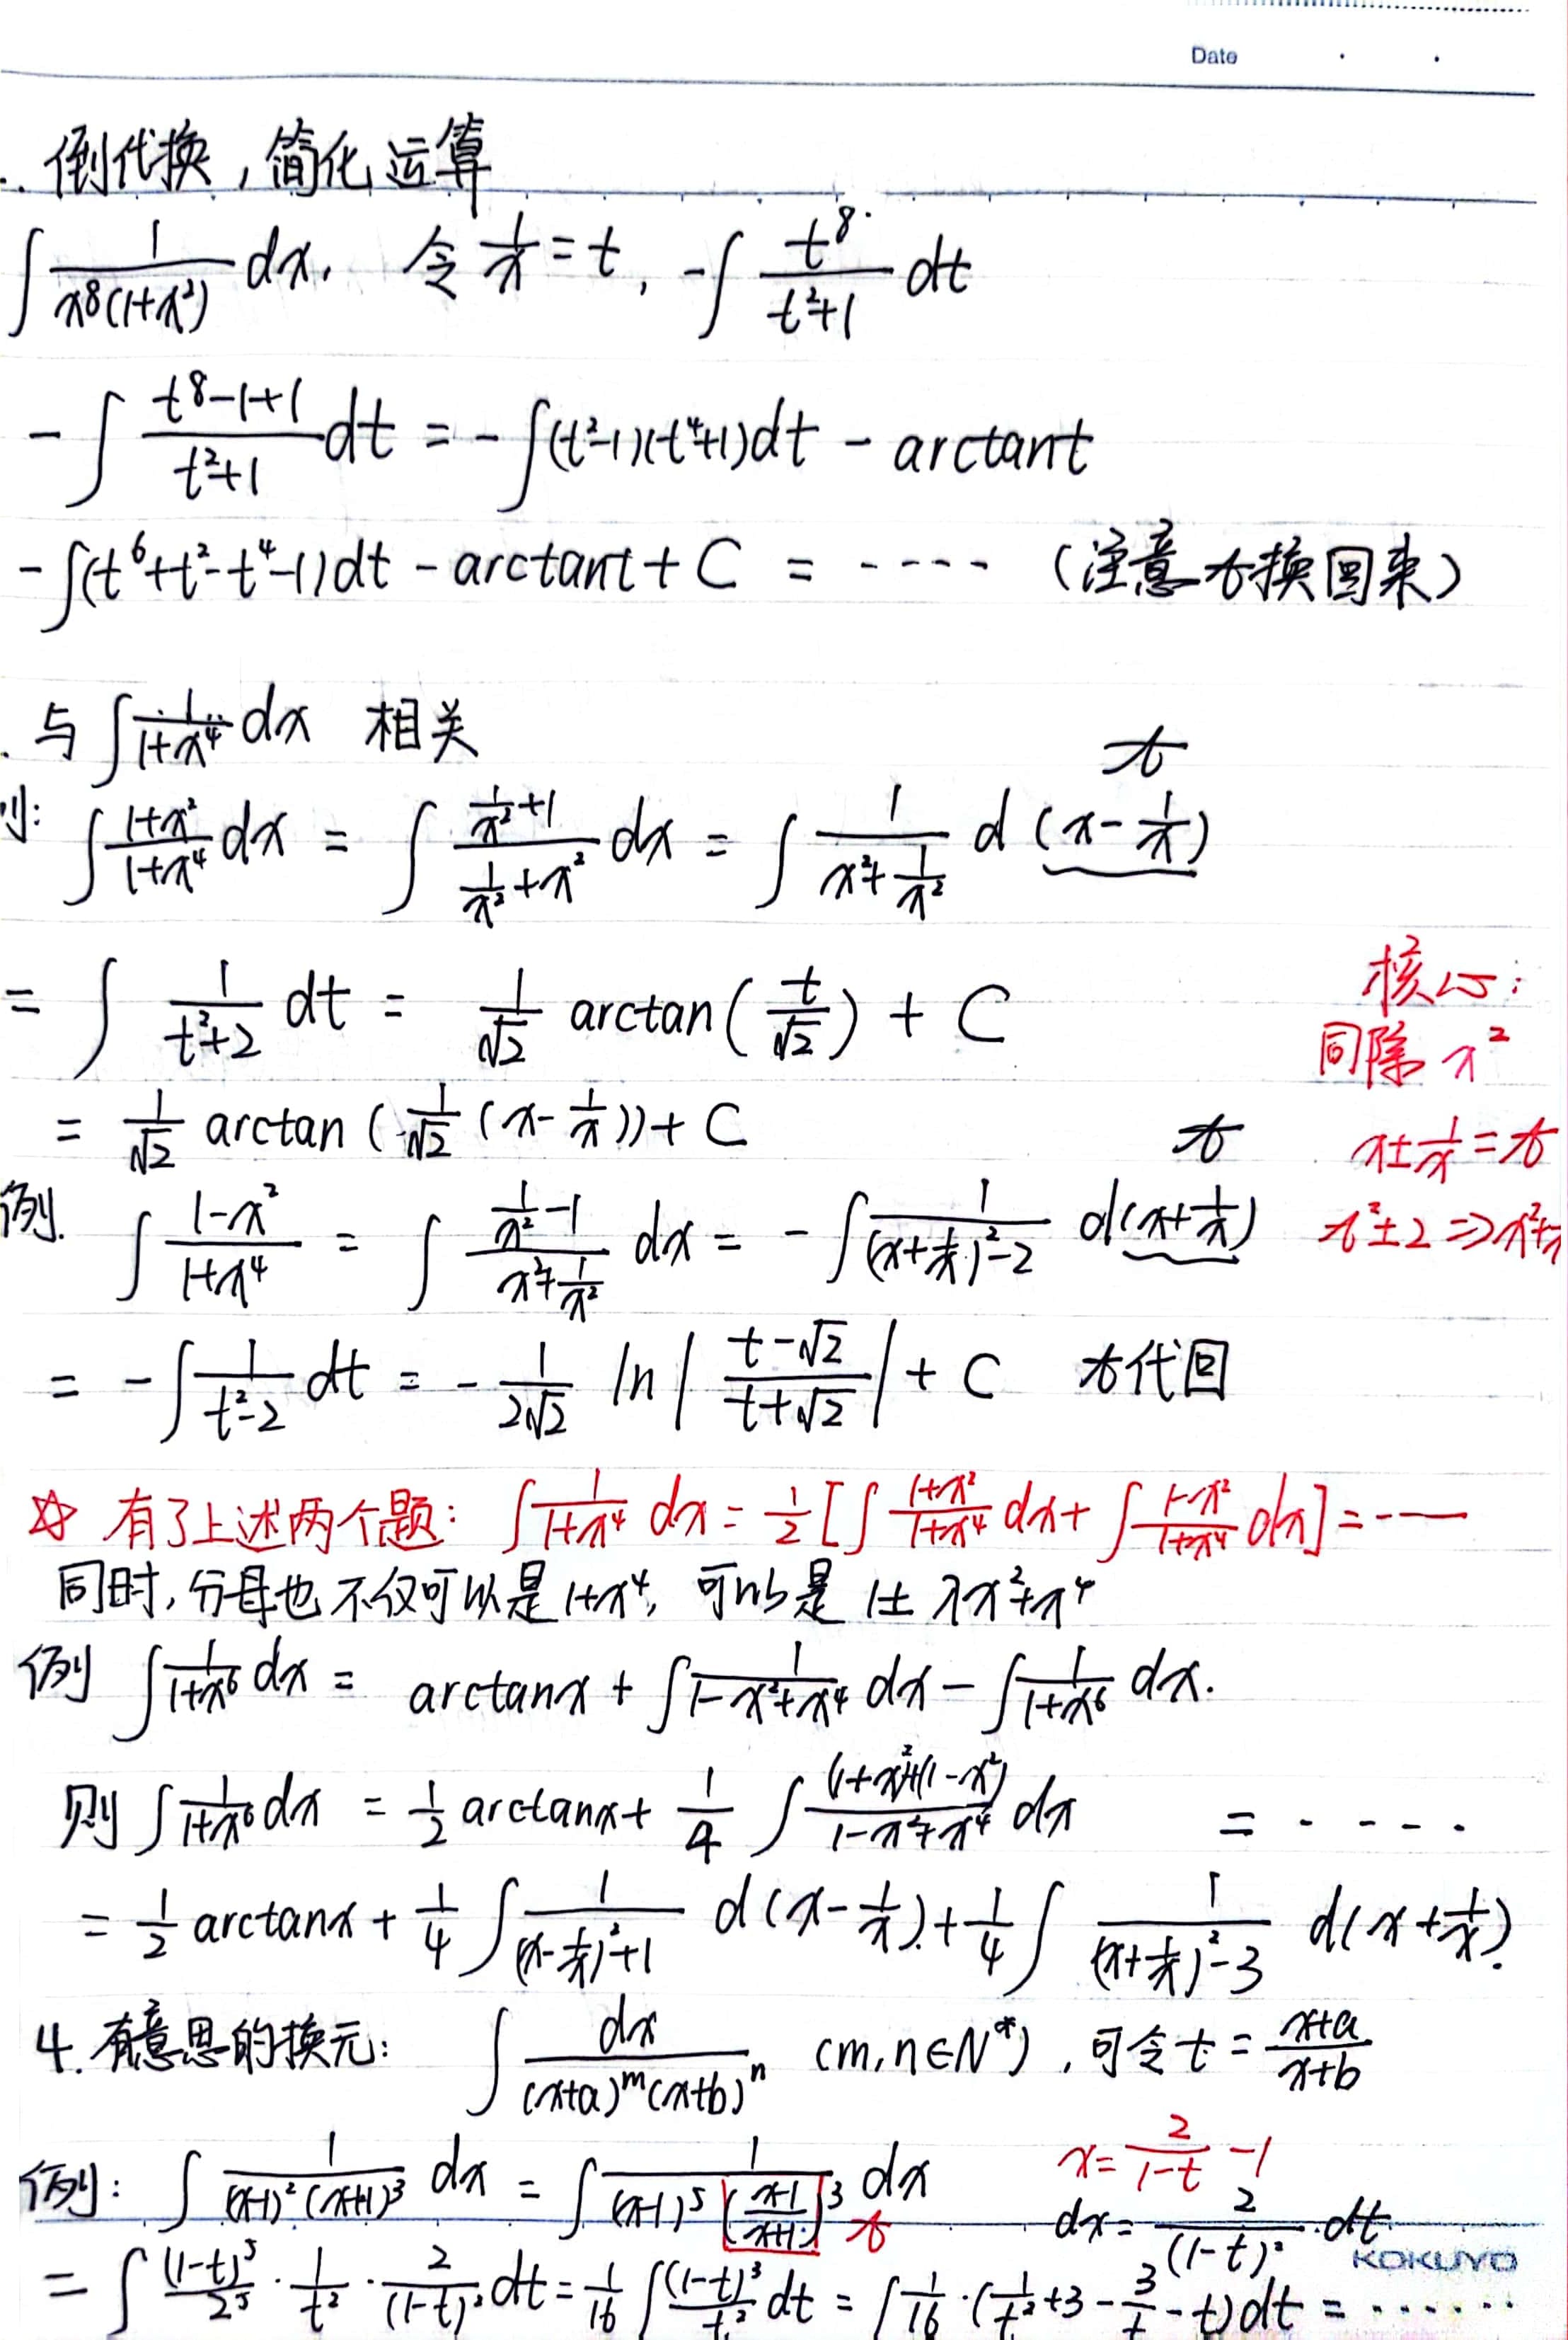 Date
. 倒代换,简化运算
∫ 1/(x⁸(1+x²)) dx. 令 1/x = t, -∫ t⁸/(t²+1) dt
-∫ (t⁸-1+1)/(t²+1) dt = -∫(t²-1)(t⁴+1)dt - arctant
-∫(t⁶+t²-t⁴-1)dt - arctant + C = ---- (注意t换回来)
. 与 ∫ 1/(1+x⁴) dx 相关
t
例: ∫ (1+x²)/(1+x⁴) dx = ∫ (1/x²+1)/(1/x²+x²) dx = ∫ 1/(x²+1/x²) d(x-1/x)
= ∫ 1/(t²+2) dt = 1/√2 arctan(t/√2) + C
核心:
同除 x²
= 1/√2 arctan(1/√2 (x-1/x)) + C
t
x±1/x = t
例. ∫ (1-x²)/(1+x⁴) = ∫ (1/x²-1)/(x²+1/x²) dx = -∫ 1/((x+1/x)²-2) d(x+1/x)
t²±2 ⇒ x²+
= -∫ 1/(t²-2) dt = -1/(2√2) ln|(t-√2)/(t+√2)| + C t代回
☆ 有了上述两个题: ∫ 1/(1+x⁴) dx = 1/2 [∫ (1+x²)/(1+x⁴) dx + ∫ (1-x²)/(1+x⁴) dx] = ----
同时,分母也不仅可以是1+x⁴, 可以是 1±λx²+x⁴
例 ∫ 1/(1+x⁶) dx = arctanx + ∫ 1/(1-x²+x⁴) dx - ∫ 1/(1+x⁶) dx.
则 ∫ 1/(1+x⁶) dx = 1/2 arctanx + 1/4 ∫ ((1+x²)+(1-x²))/(1-x²+x⁴) dx = ----
= 1/2 arctanx + 1/4 ∫ 1/((x-1/x)²+1) d(x-1/x) + 1/4 ∫ 1/((x+1/x)²-3) d(x+1/x).
4. 有意思的换元: ∫ dx/((x+a)ᵐ(x+b)ⁿ) (m,n∈N*), 可令 t = (x+a)/(x+b)
例: ∫ 1/((x-1)²(x+1)³) dx = ∫ 1/((x-1)⁵ [(x-1)/(x+1)]³) dx
t
x = 2/(1-t) - 1
dx = 2/(1-t)² dt
KOKUYO
= ∫ (1-t)⁵/2⁵ · 1/t² · 2/(1-t)² dt = 1/16 ∫ (1-t)³/t² dt = ∫ 1/16 · (1/t²+3-3/t-t)dt = ······